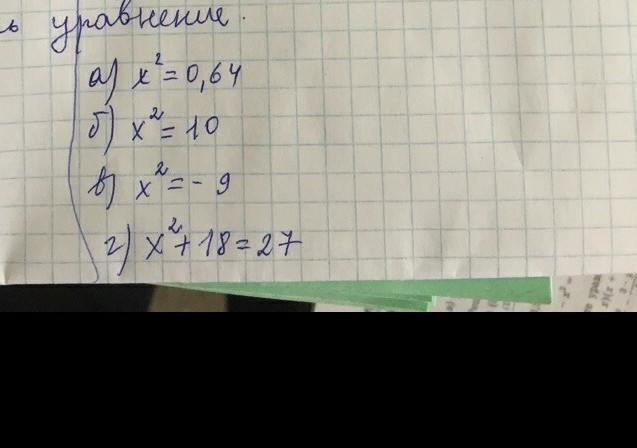 уравнение.
а) x² = 0,64
б) x² = 10
в) x² = - 9
г) x² + 18 = 27